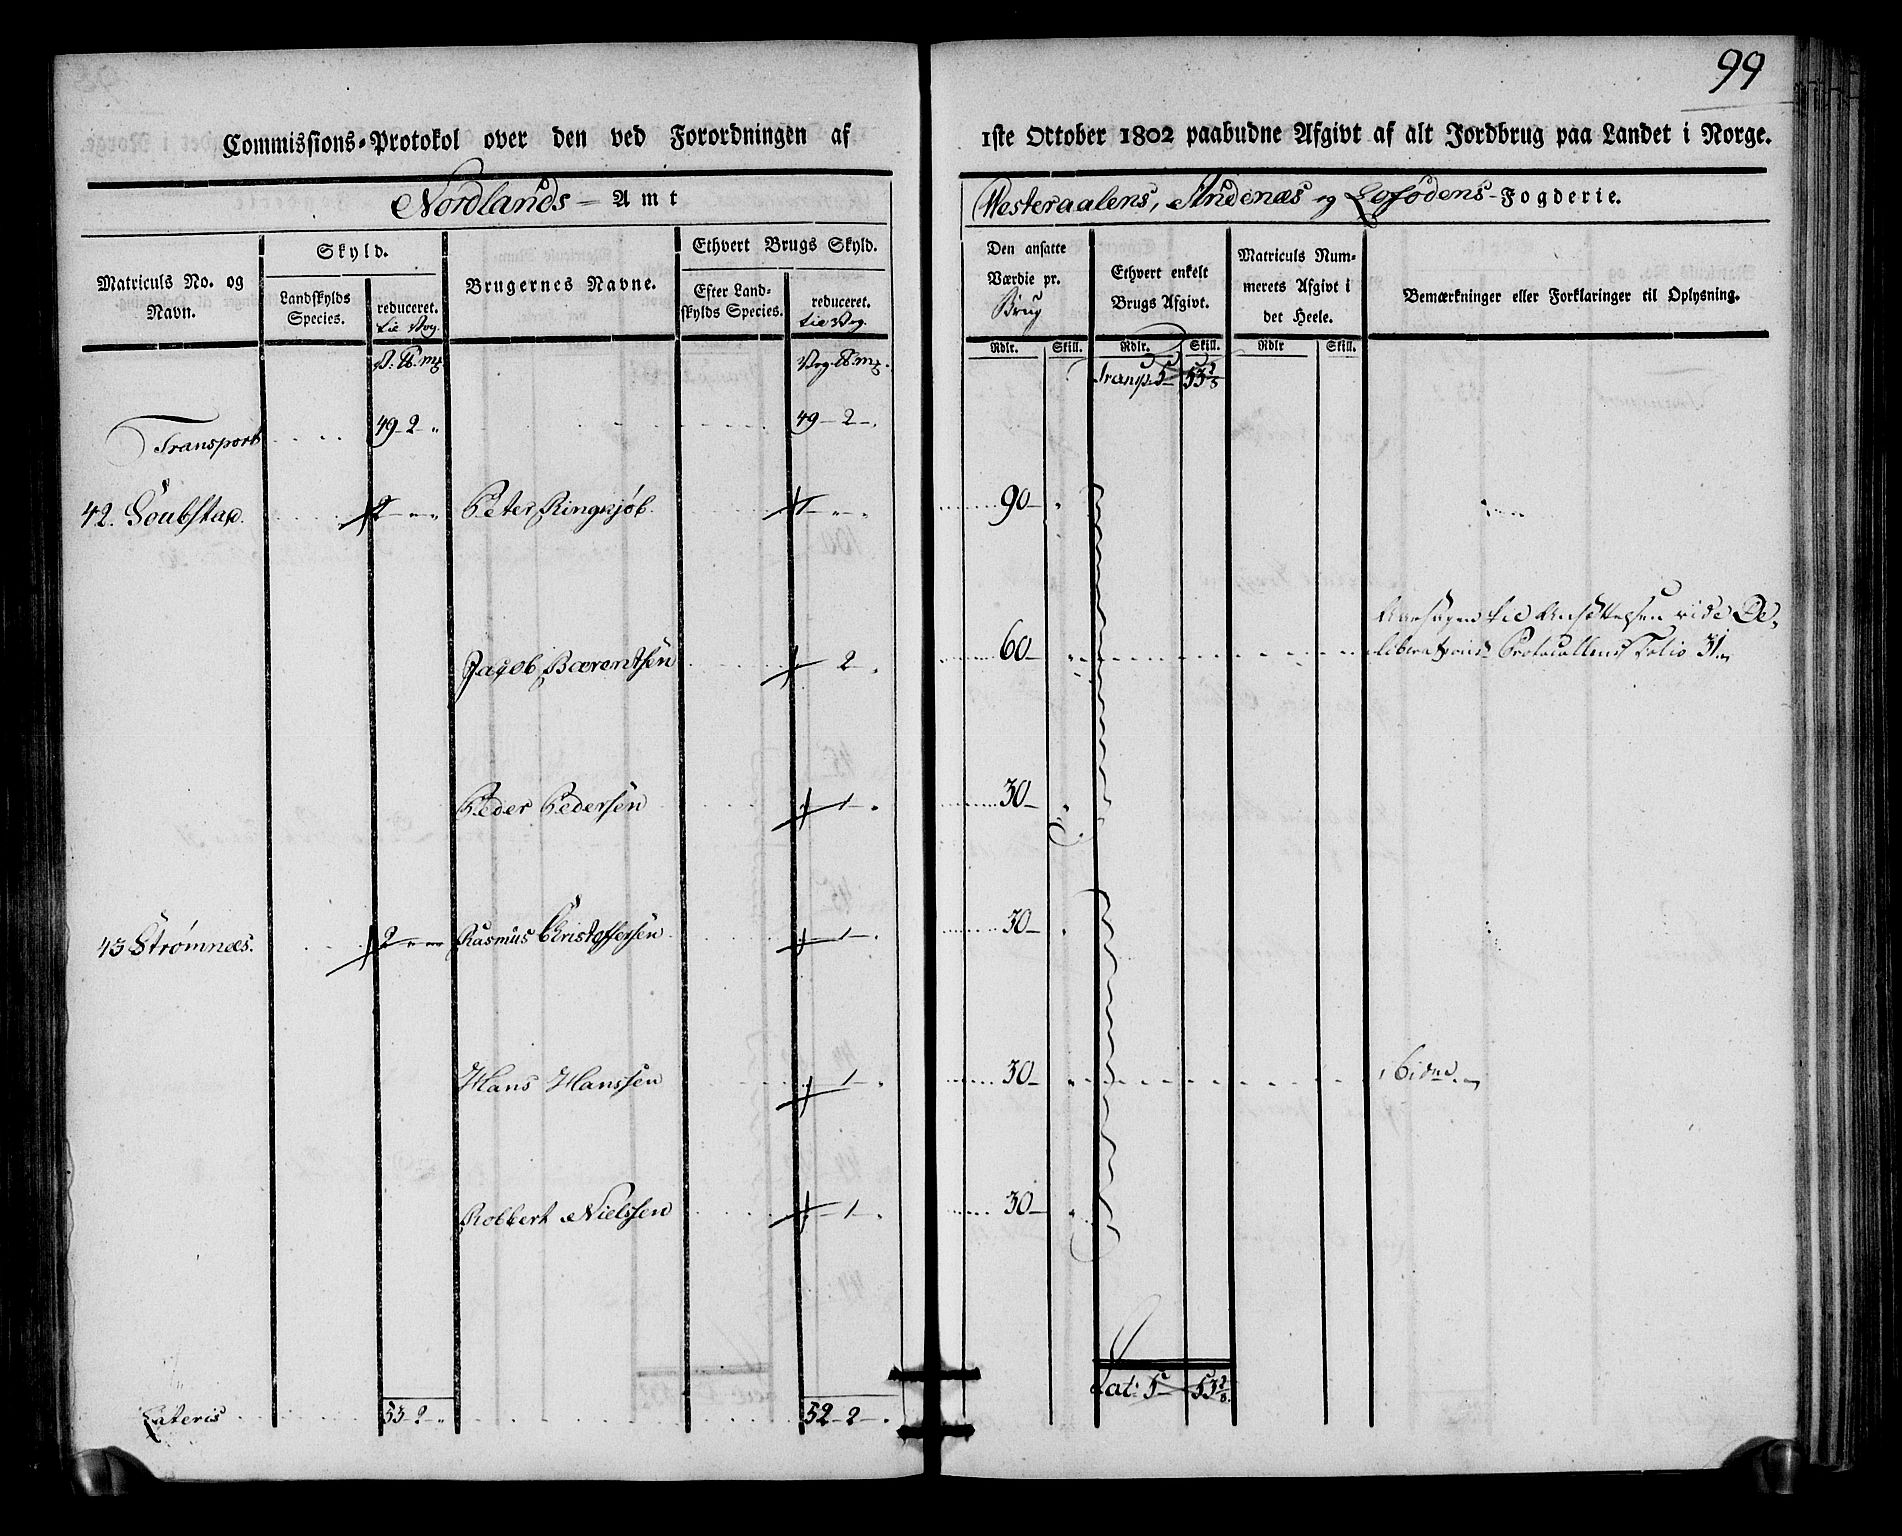 99
Commissions-Protokol over den ved Forordningen af 1ste October 1802 paabudne Afgivt af alt Jordbrug paa Landet i Norge.
Nordlands - Amt
Westeraalens, Andenæs og Lofodens - Fogderie.
Matriculs No. og Navn.
Skyld.
Landskylds Species.
reduceret. til Vog.
Brugernes Navne.
Ethvert Brugs Skyld.
Efter Landskylds Species.
reduceret. til Vog.
Den ansatte Værdie pr. Brug
Ethvert enkelt Brugs Afgivt.
Matriculs Nummerets Afgivt i det Heele.
Bemærkninger eller Forklaringer til Oplysning.
Rdlr. Skill. Rdlr. Skill. Rdlr Skill.
V. ℔. mg Vog. ℔. mg.
Transp. 5 53 2/8
Transport 49 - 2 " 49 - 2 - "
42. Goubstad. 2 - " - " Peter Ringsjøb. 1 " - " 90 - "
Aarsagen til Ansættelsen vide De-
Jacob Bærentsen 2 " 60 - " liberations Protocollens Folio 31
Peder Pedersen 1 - " 30 - "
43 Strømnæs. 2 - " - " Rasmus Christoffersen 1 - " 30 - "
Hans Hanssen 1 - " 30 - " ibidm
Robbert Nielssen 1 - " 30 - "
Lat: 5 53 2/8
Lateris 53 2 - " 52 - 2 - "